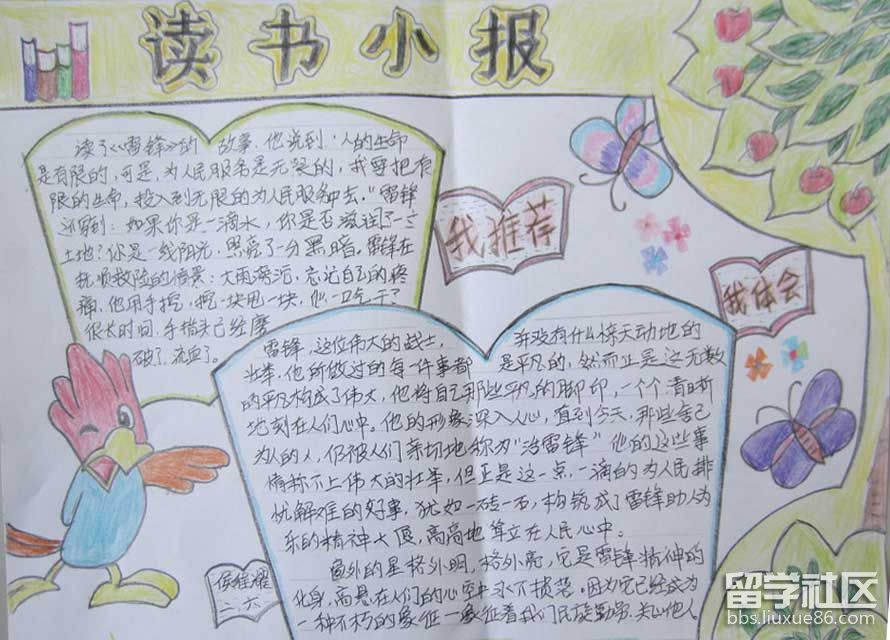 读书小报
读了《雷锋》的 故事,他说到"人的生命
是有限的,可是,为人民服务是无限的,我要把有
限的生命,投入到无限的为人民服务中去。"雷锋
还写到:如果你是一滴水,你是否滋润了一寸
土地?你是一线阳光,照亮了一分黑暗。雷锋在
抚顺救险的情景:大雨滂沱,忘记自己的疼
痛,他用手挖,挖一块甩一块,他一口气干了
很长时间,手指末已经磨
破了,流血了。
我推荐
我体会
雷锋,这位伟大的战士, 并没有什么惊天动地的
壮举,他所做过的每一件事都 是平凡的,然而正是这无数
的平凡构成了伟大,他将自己那些平凡的脚印,一个个清晰
地刻在人们心中。他的形象深入人心,直到今天,那些舍己
为人的人,仍被人们亲切地称为"活雷锋"他的这些事
情称不上伟大的壮举,但正是这一点一滴的为人民排
忧解难的好事,犹如一砖一石,构筑成了雷锋助人为
乐的精神大厦,高高地耸立在人民心中。
窗外的星格外明,格外亮,它是雷锋精神的
化身,高悬在人们的心空中永不损落。因为它已经成为
一种不朽的象征—象征着我们民族勤劳、关心他人
二.六
留学社区
bbs.liuxue86.com